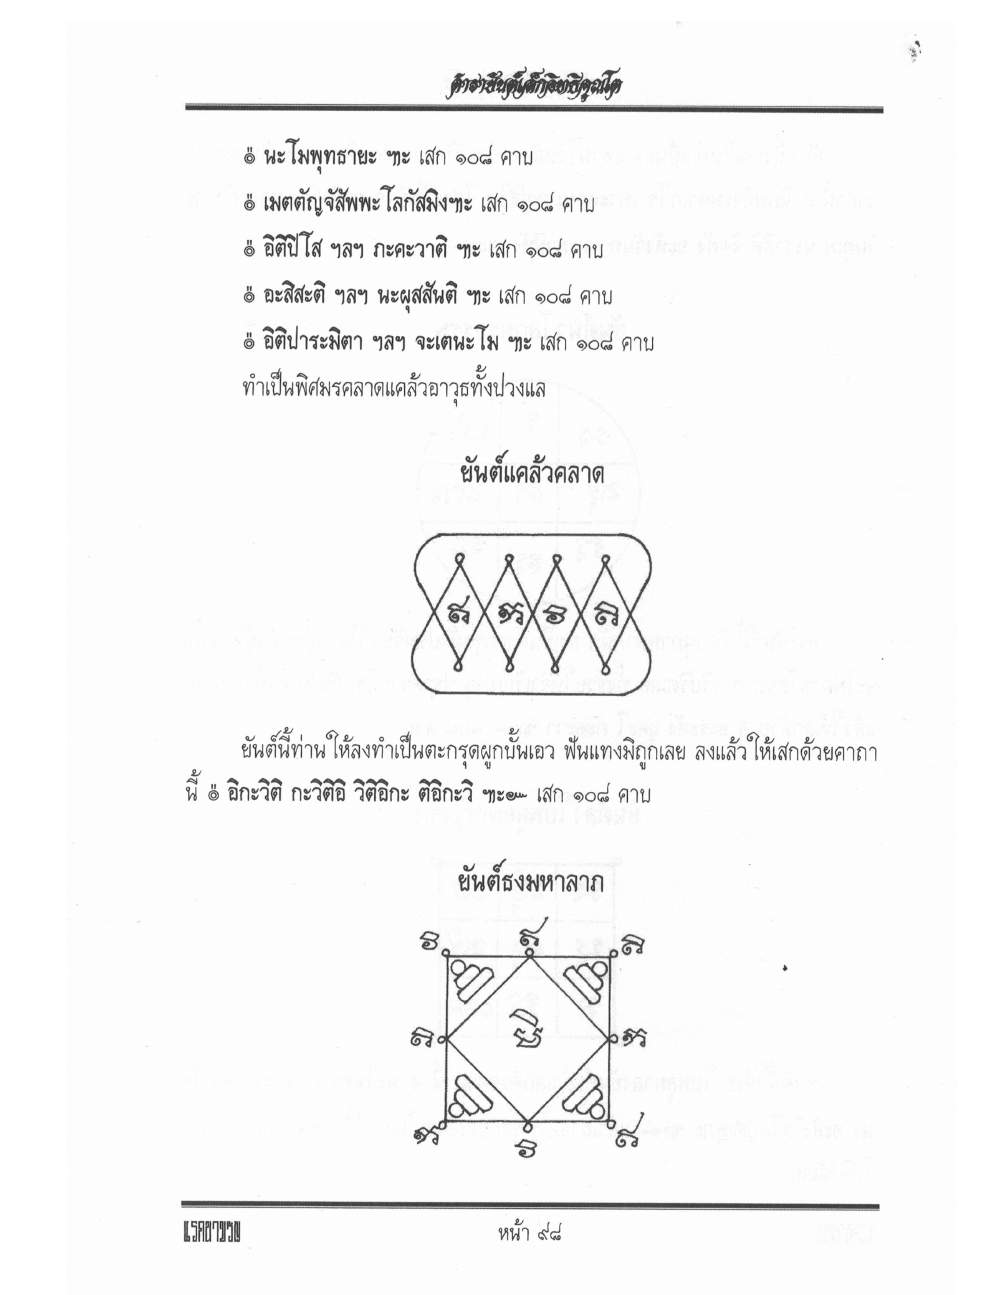 ๏ นะโมพุทธายะ ฯะ เสก ๑๐๘ คาบ
๏ เมตตัญจัสัพพะโลกัสมิงฯะ เสก ๑๐๘ คาบ
๏ อิติปิโส ฯลฯ ภะคะวาติ ฯะ เสก ๑๐๘ คาบ
๏ อะสิสะติ ฯลฯ นะผุสสันติ ฯะ เสก ๑๐๘ คาบ
๏ อิติปาระมิตา ฯลฯ จะเตนะโม ฯะ เสก ๑๐๘ คาบ
ทำเป็นพิศมรคลาดแคล้วอาวุธทั้งปวงแล
ยันต์แคล้วคลาด
ยันต์นี้ท่านให้ลงทำเป็นตะกรุดผูกบั้นเอว ฟันแทงมิถูกเลย ลงแล้วให้เสกด้วยคาถา
นี้ ๏ อิกะวิติ กะวิติอิ วิติอิกะ ติอิกะวิ ฯะ๛ เสก ๑๐๘ คาบ
ยันต์ธงมหาลาภ
หน้า ๙๘